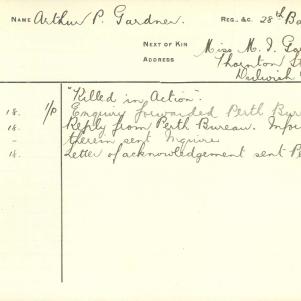 NAME Arthur P. Gardner. REG. &C. 28th Ba
NEXT OF KIN Miss M. I. Ga
ADDRESS Thornton St
Dulwich
"Killed in Action".
18. 1/P Enquiry forwarded Perth Bur
18. Reply from Perth Bureau. Info
- therein sent Inquirer
18. Letter of acknowledgement sent Pe